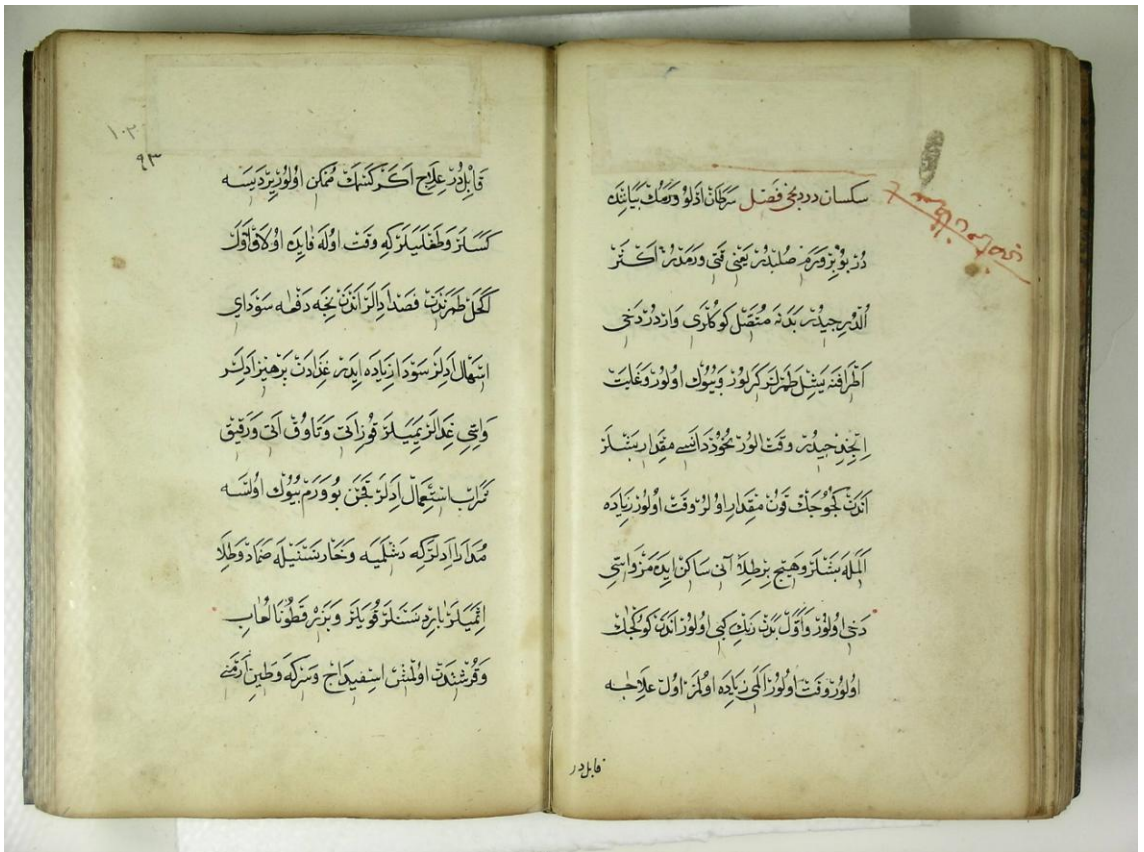 سکسان دردنجی فصل سرطان ادلو ورمک بیانندە
در بو بر ورم صلبدر یعنی قتی ورمدر اکثر
الدرجیدر بدنه متصل کوکلری واردر دخی
اطرافنه یشل طمرلر کرلور و بیوك اولور و غلبت
انجدجیدر وقت الور نخود دانسی مقدار بشلر
اندن کجوجك قون مقدار اولر وقت اولور زیاده
المله بشلر و هیچ بر طلا آنی ساکن ایده مز و اسی
دخی اولور و اول بدن رنك کبی اولور اندن کوکجك
اولور وقت اولور المی زیاده اولمز اول علاجه
قابلدر
۱۰۲
۹۳
قابلدر علاج اکر کسمك ممکن اولور یردیسه
کسلر و طفلیلر که وقت اوله فایده اولا و اول
اکحل طمرندن فصد ادلر اندن نجه دفعه سودای
اسهال ادلر سودا زیاده ایدن غذادن برهیز ادلر
و اتی غدالر یمیلر قوز اتی و تاوق اتی و رقیق
شراب استعمال ادلر قجن بو ورم بیوك اولسه
مدارا ادلر که دشلمیه و حار نسنیله ضماد و طلا
اتمیلر بارد نسنلر قویلر و بزر قطونا لعاب
و قرشندن اولمش اسفیداج و سرکه و طین ارمنی